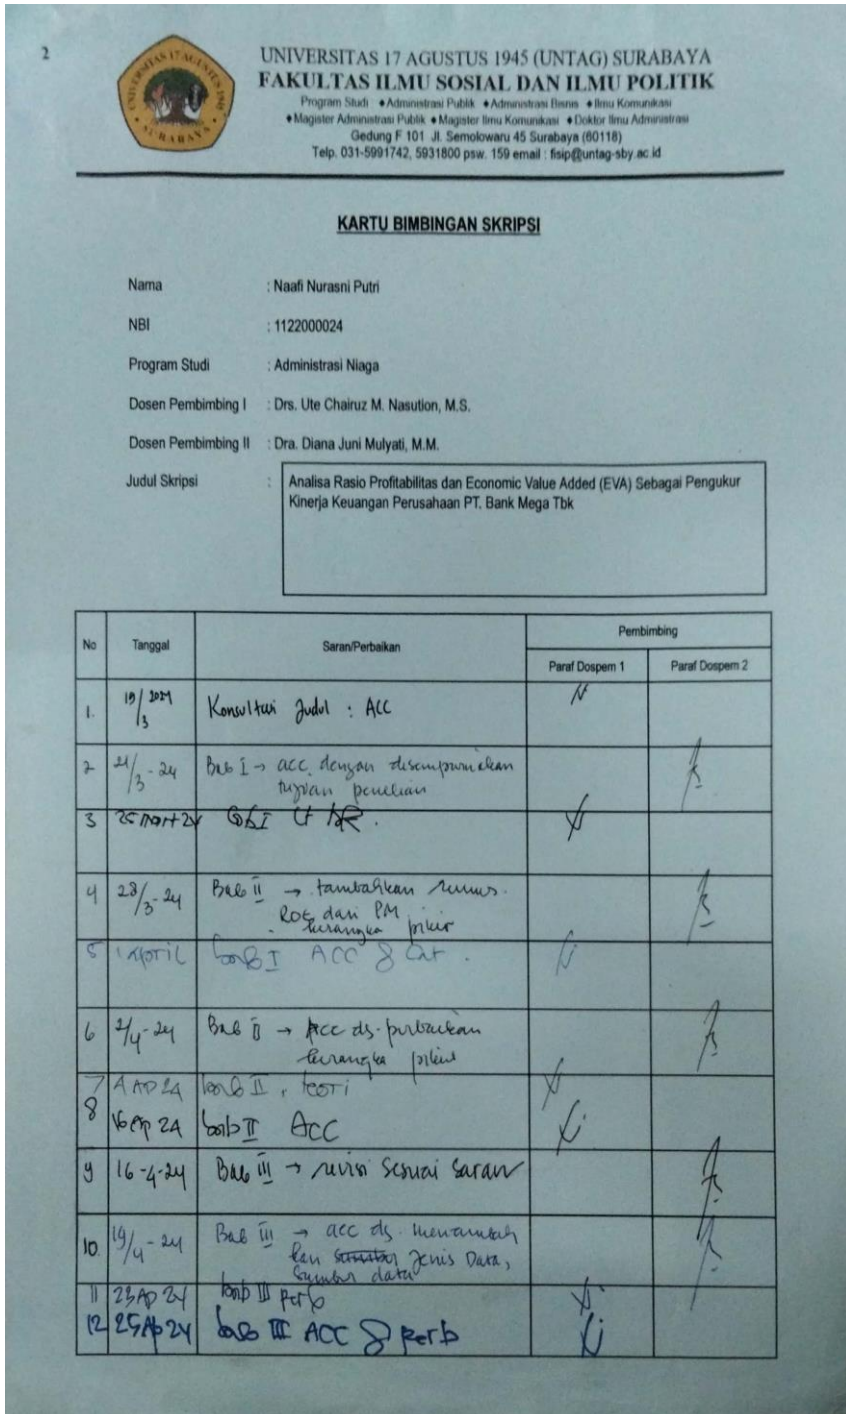 2
UNIVERSITAS 17 AGUSTUS 1945
SURABAYA
UNIVERSITAS 17 AGUSTUS 1945 (UNTAG) SURABAYA
FAKULTAS ILMU SOSIAL DAN ILMU POLITIK
Program Studi ♦Administrasi Publik ♦Administrasi Bisnis ♦Ilmu Komunikasi
♦Magister Administrasi Publik ♦Magister Ilmu Komunikasi ♦Doktor Ilmu Administrasi
Gedung F 101 Jl. Semolowaru 45 Surabaya (60118)
Telp. 031-5991742, 5931800 psw. 159 email : fisip@untag-sby.ac.id
KARTU BIMBINGAN SKRIPSI
Nama : Naafi Nurasni Putri
NBI : 1122000024
Program Studi : Administrasi Niaga
Dosen Pembimbing I : Drs. Ute Chairuz M. Nasution, M.S.
Dosen Pembimbing II : Dra. Diana Juni Mulyati, M.M.
Judul Skripsi : Analisa Rasio Profitabilitas dan Economic Value Added (EVA) Sebagai Pengukur
Kinerja Keuangan Perusahaan PT. Bank Mega Tbk
No Tanggal Saran/Perbaikan Pembimbing
Paraf Dospem 1 Paraf Dospem 2
1. 19/3 2024 Konsultasi Judul : ACC
2 21/3-24 Bab I → acc dengan disempurnakan
tujuan penelitian
3 25 24
4 28/3-24 Bab II → tambahkan rumus
ROE dari PM
kerangka pikir
5 1 April bab I ACC
6 2/4-24 Bab II → Acc dg. perbaikan
kerangka pikir
7 4 Ap 24 bab II, teori
8 16 Ap 24 bab II ACC
9 16-4-24 Bab III → revisi sesuai saran
10. 19/4-24 Bab III → acc dg. menambah
kan Jenis Data,
Sumber data
11 23 Ap 24 bab III perb
12 25 Ap 24 bab III ACC & perb